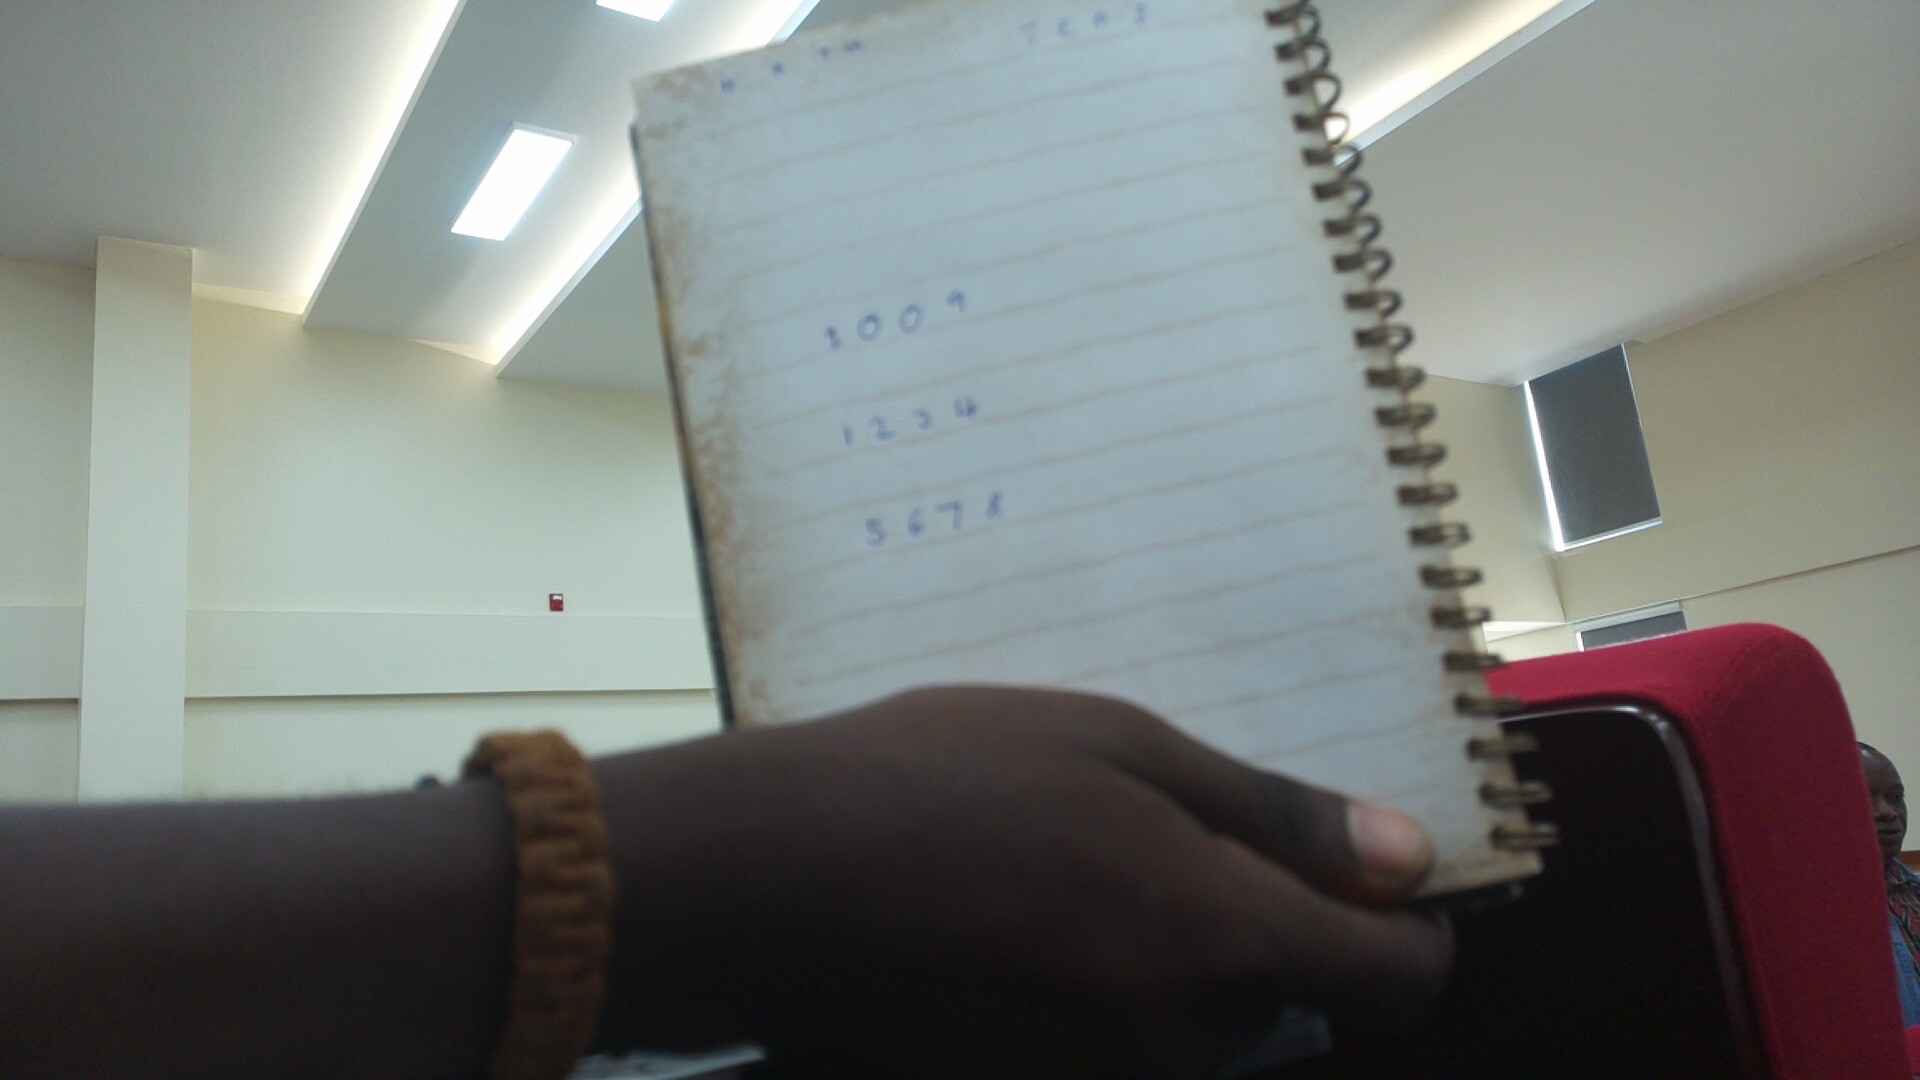 MATH
1009
1234
5678